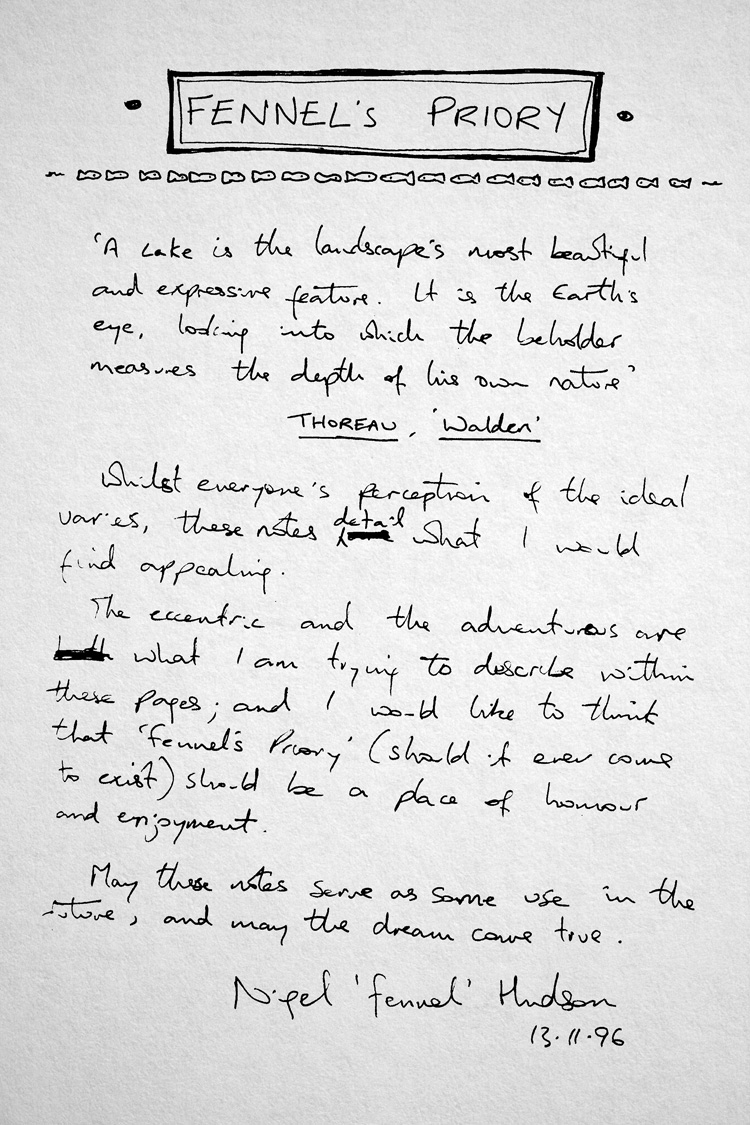 FENNEL'S PRIORY
'A Lake is the landscape's most beautiful
and expressive feature. It is the Earth's
eye, looking into which the beholder
measures the depth of his own nature'
THOREAU, 'Walden'
Whilst everyone's perception of the ideal
varies, these notes detail what I would
find appealing.
The eccentric and the adventurous are
what I am trying to describe within
these pages; and I would like to think
that 'Fennel's Priory' (should it ever come
to exist) should be a place of honour
and enjoyment.
May these notes serve as some use in the
future, and may the dream come true.
Nigel 'Fennel' Hudson
13.11.96